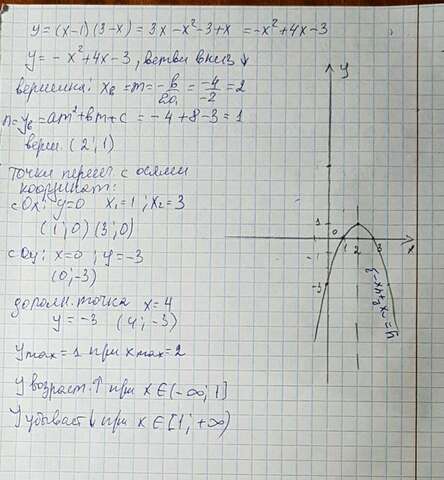 y=(x-1)(3-x) = 3x-x²-3+x = -x²+4x-3
y = -x²+4x-3, ветви вниз ↓
вершина: xв = m = -в/2a = -4/-2 = 2
n=yв = am²+вm+c = -4+8-3=1
верш. (2; 1)
точки перес. с осями
координат:
с Ox: y=0 x₁=1; x₂=3
(1; 0) (3; 0)
с Oy: x=0; y=-3
(0; -3)
дополн. точка x=4
y = -3 (4; -3)
y max = 1 при x max = 2
y возраст. ↑ при x ∈ (-∞; 1]
y убывает ↓ при x ∈ [1; +∞)
y
1
0
1
2
3
x
-1
-3
y=-x²+4x-3